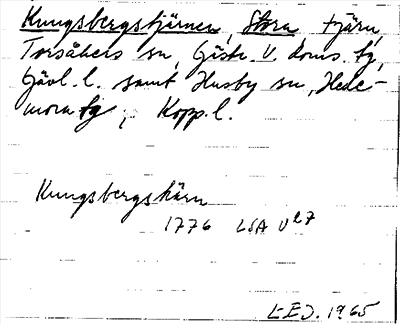 Kungsbergstjärnen, Stora, tjärn,
Torsåkers sn, Gästr. V. doms. tg,
Gävl. l. samt Husby sn, Hede-
mora tg, Kopp. l.
Kungsbergskärn
1776 LSA U 27
L-E J. 1965